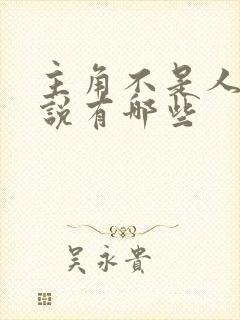 主角不是人
說有哪些
吴永貴